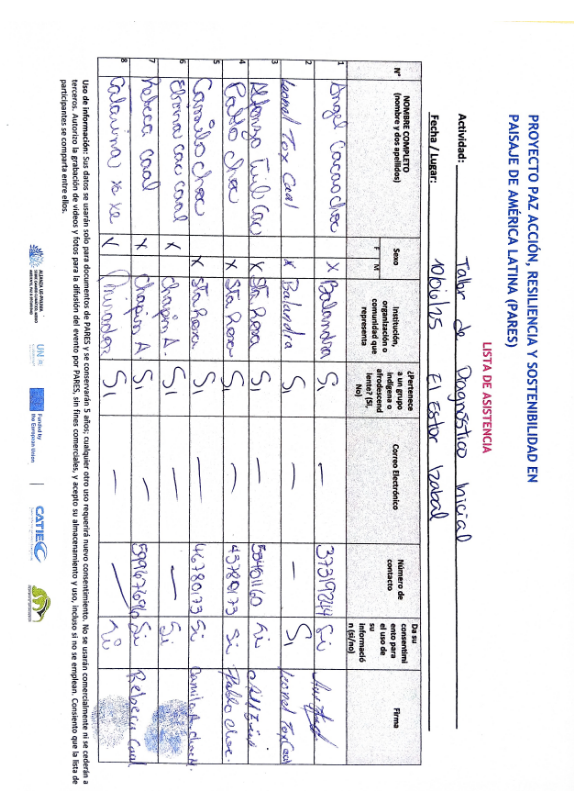 PROYECTO PAZ ACCIÓN, RESILIENCIA Y SOSTENIBILIDAD EN
PAISAJE DE AMÉRICA LATINA (PARES)
LISTA DE ASISTENCIA
Actividad: Taller de Diagnóstico Inicial
Fecha / Lugar: 10/6/25 El Estor Izabal
N° NOMBRE COMPLETO (nombre y dos apellidos) Sexo F M Institución, organización o comunidad que representa ¿Pertenece a un grupo indígena o afrodescendiente? (Si, No) Correo Electrónico Número de contacto Da su consentimiento para el uso de su información (si/no) Firma
1 Angel Cacao choc X Balandra Si — 37319244 Si
2 Leonel Tox Caal X Balandra Si — — Si Leonel Tox Caal
3 Alfonzo Tul Cac X Sta Rosa Si — 50401160 Si
4 Pablo choc X Sta Rosa Si — 45780173 Si Pablo choc.
5 Camilo choc X Sta Rosa Si — 46780173 Si
6 Elvira cac caal X Chapin A. Si — — Si
7 Rebeca caal X Chapin A. Si — Si Rebeca Caal
8 Catarina xe xe Si — — Si
Uso de información: Sus datos se usarán solo para documentos de PARES y se conservarán 5 años; cualquier otro uso requerirá nuevo consentimiento. No se usarán comercialmente ni se cederán a
terceros. Autorizo la grabación de videos y fotos para la difusión del evento por PARES, sin fines comerciales, y acepto su almacenamiento y uso, incluso si no se emplean. Consiento que la lista de
participantes se comparta entre ellos.
Funded by
the European Union
CATIE